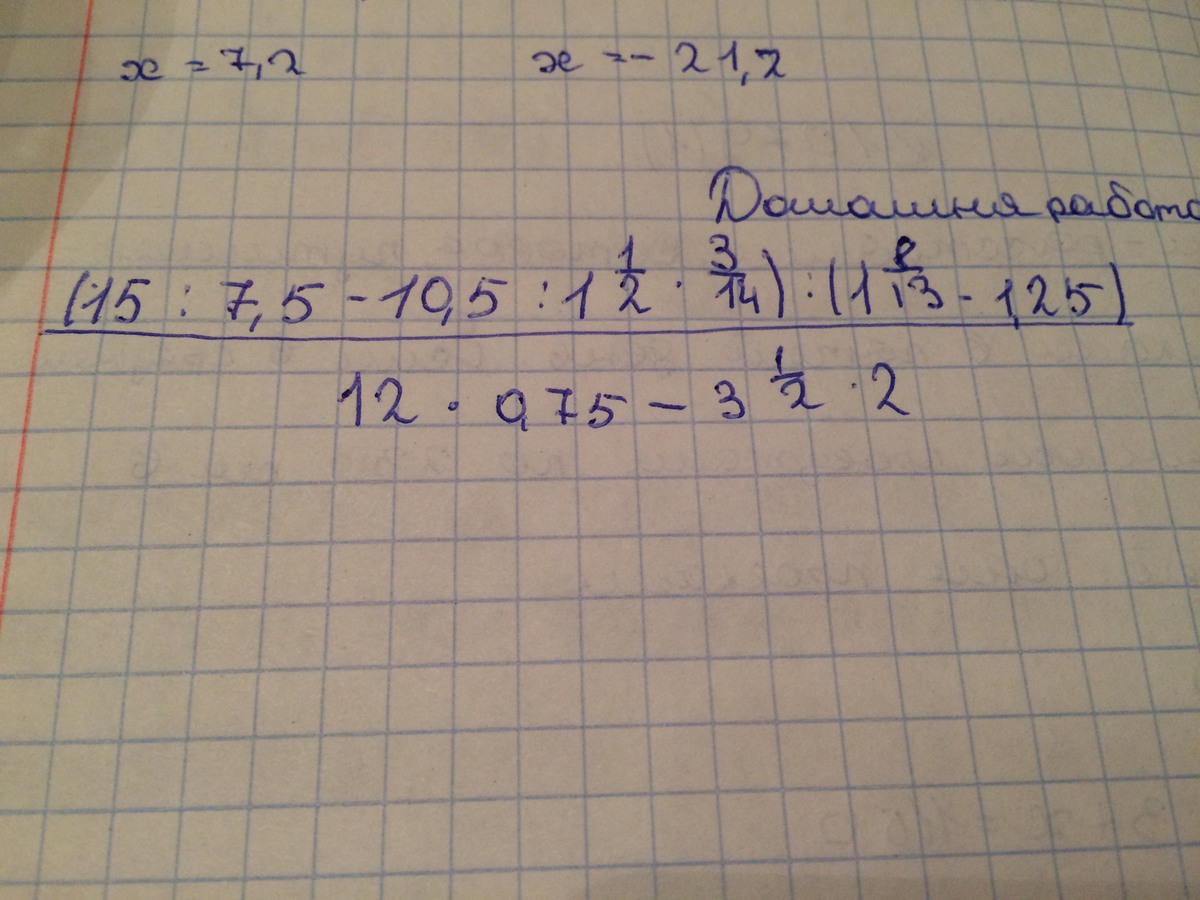 x = 7,2 x = - 21,2
Домашня работа
(15 : 7,5 - 10,5 : 1 1/2 · 3/14) : (1 8/13 - 1,25)
12 · 0,75 - 3 1/2 · 2